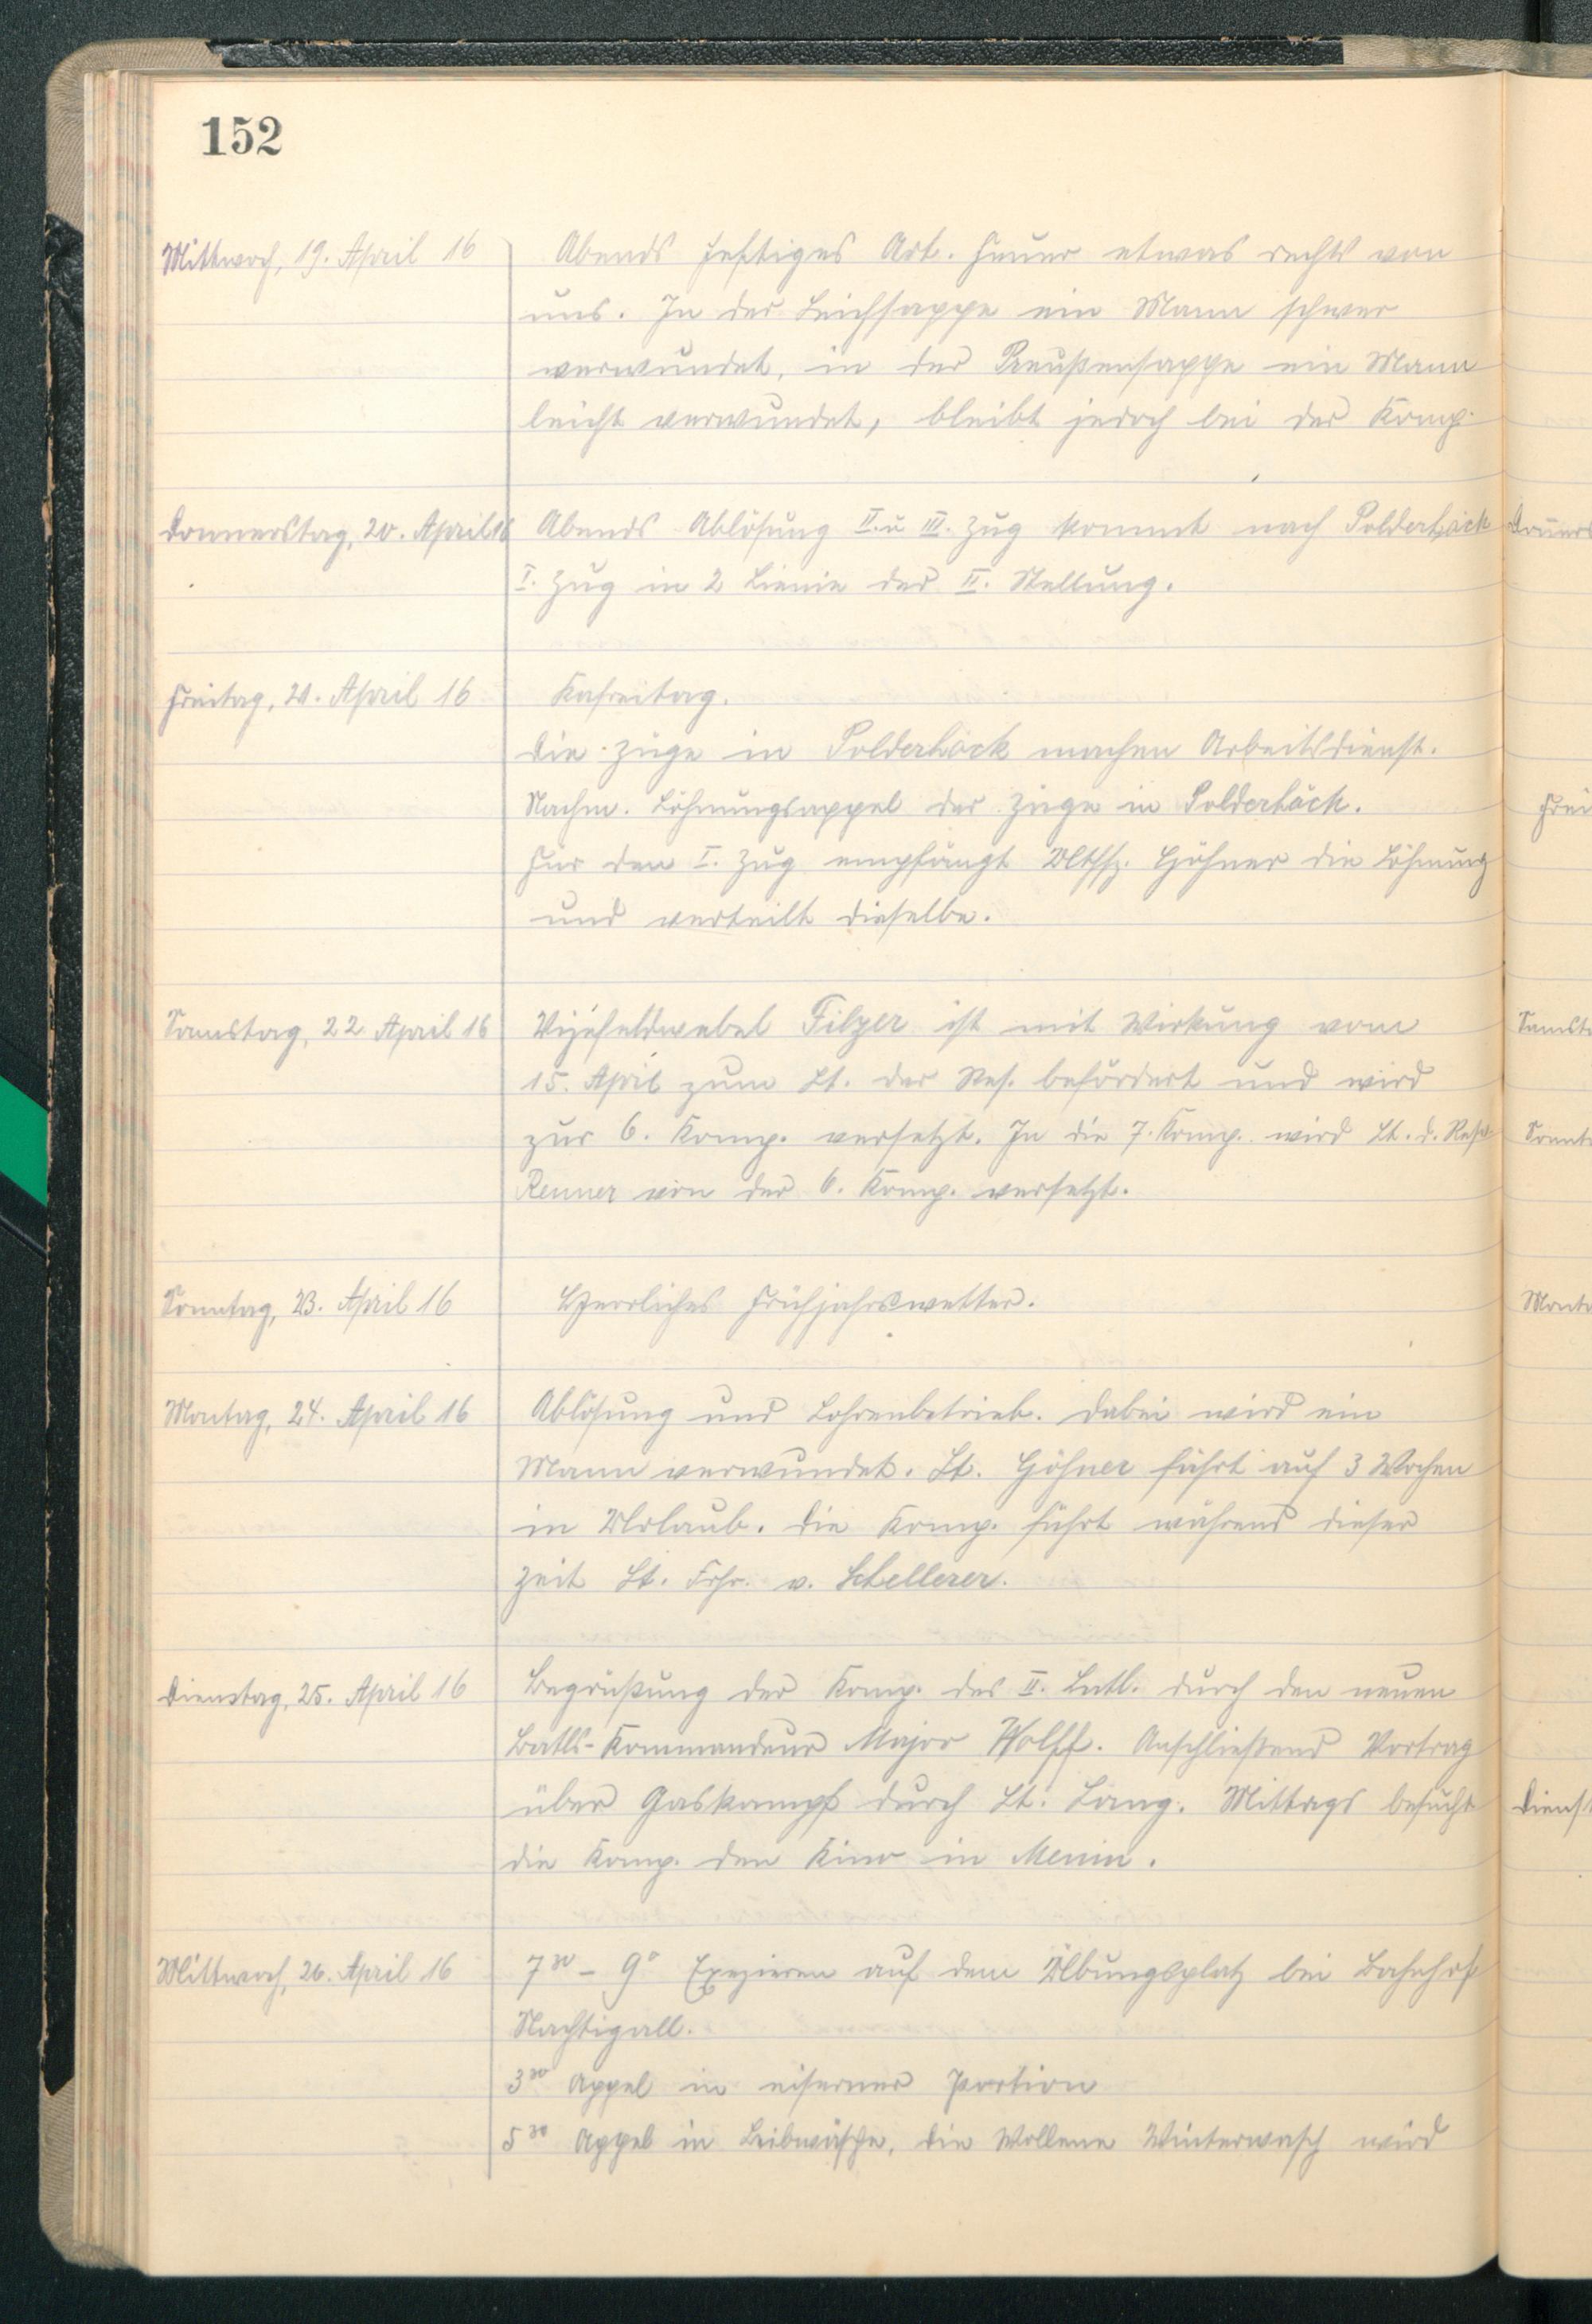 152
Mittwoch, 19. April 16
Abends heftiges Art. Feuer etwas rechts von
uns. In der Leichsappe ein Mann schwer
verwundet, in der Preußensappe ein Mann
leicht verwundet, bleibt jedoch bei der Komp.
Donnerstag, 20. April 16
Abends Ablösung II. u III. Zug kommt nach Polderhöck
I. Zug in 2 Linie der II. Stellung.
Freitag, 21. April 16
Kafreitag.
Die Züge in Polderhöck machen Arbeitsdienst.
Nachm. Löhnungsappel der Züge in Polderhöck.
Für den I. Zug empfängt Utffz. Höhner die Löhnung
und verteilt dieselbe.
Samstag, 22 April 16
Vizefeldwebel Filzer ist mit Wirkung vom
15. April zum Lt. der Res. befördert und wird
zur 6. Komp. versetzt. In die 7. Komp. wird Lt. d. Res.
Renner von der 6. Komp. versetzt.
Sonntag, 23. April 16
Herrliches Frühjahrswetter.
Montag, 24. April 16
Ablösung und Lohrenbetrieb. Dabei wird ein
Mann verwundet. Lt. Höhner fährt auf 3 Wochen
in Urlaub. Die Komp. führt während dieser
Zeit Lt. Frhr. v. Schellerer.
Dienstag, 25. April 16
Begrüßung der Komp. des II. Batl. durch den neuen
Batls-Kommandeur Major Wolff. Anschließend Vortrag
über Gaskampf durch Lt. Lang. Mittags besucht
die Komp. den Kino in Menin.
Mittwoch, 26. April 16
7³⁰ – 9⁰ Exezieren auf dem Übungsplatz bei Bahnhof
Nachtigall.
3³⁰ Appel in eiserner Portion
5³⁰ Appel in Leibwäsche, die Wollene Winterwasch wird